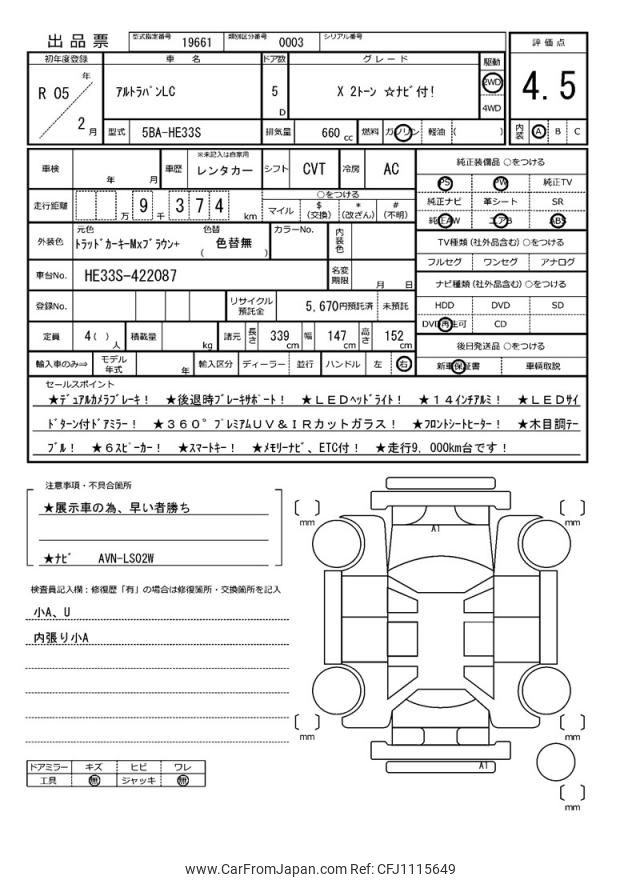 出品票 型式指定番号 19661 類別区分番号 0003 シリアル番号
評価点
4.5
内装 A B C
初年度登録 車名 ドア数 グレード 駆動
R 05 年 2月
アルトラパンLC 5D X 2トーン ☆ナビ付! 2WD 4WD
型式 5BA-HE33S 排気量 660 cc 燃料 ガソリン 軽油 ( )
車検 年 月 車歴 ※未記入は自家用 レンタカー シフト CVT 冷房 AC
走行距離 万 9 千 3 7 4 km ○をつける マイル $(交換) *(改ざん) #(不明)
外装色 元色 トラッドカーキーMxブラウン+ 色替 ( 色替無 ) カラーNo. 内装色
車台No. HE33S-422087 名変期限 月 日
登録No. リサイクル預託金 5,670円預託済 未預託
定員 4( )人 積載量 kg 諸元 長さ 339cm 幅 147cm 高さ 152cm
輸入車のみ⇒ モデル年式 年 輸入区分 ディーラー 並行 ハンドル 左 右
純正装備品 ○をつける
PS PW 純正TV
純正ナビ 革シート SR
純正AW エアB ABS
TV種類(社外品含む)○をつける
フルセグ ワンセグ アナログ
ナビ種類(社外品含む)○をつける
HDD DVD SD
DVD再生可 CD
後日発送品 ○をつける
新車保証書 車輌取説
セールスポイント
★デュアルカメラブレーキ! ★後退時ブレーキサポート! ★LEDヘッドライト! ★14インチアルミ! ★LEDサイ
ドターン付ドアミラー! ★360°プレミアムUV&IRカットガラス! ★フロントシートヒーター! ★木目調テー
ブル! ★6スピーカー! ★スマートキー! ★メモリーナビ、ETC付! ★走行9,000km台です!
注意事項・不具合箇所
★展示車の為、早い者勝ち
★ナビ AVN-LS02W
検査員記入欄:修復歴「有」の場合は修復箇所・交換箇所を記入
小A、U
内張り小A
ドアミラー キズ ヒビ ワレ
工具 無 ジャッキ 無
mm
mm
A1
mm
mm
A1
mm
www.CarFromJapan.com Ref: CFJ1115649